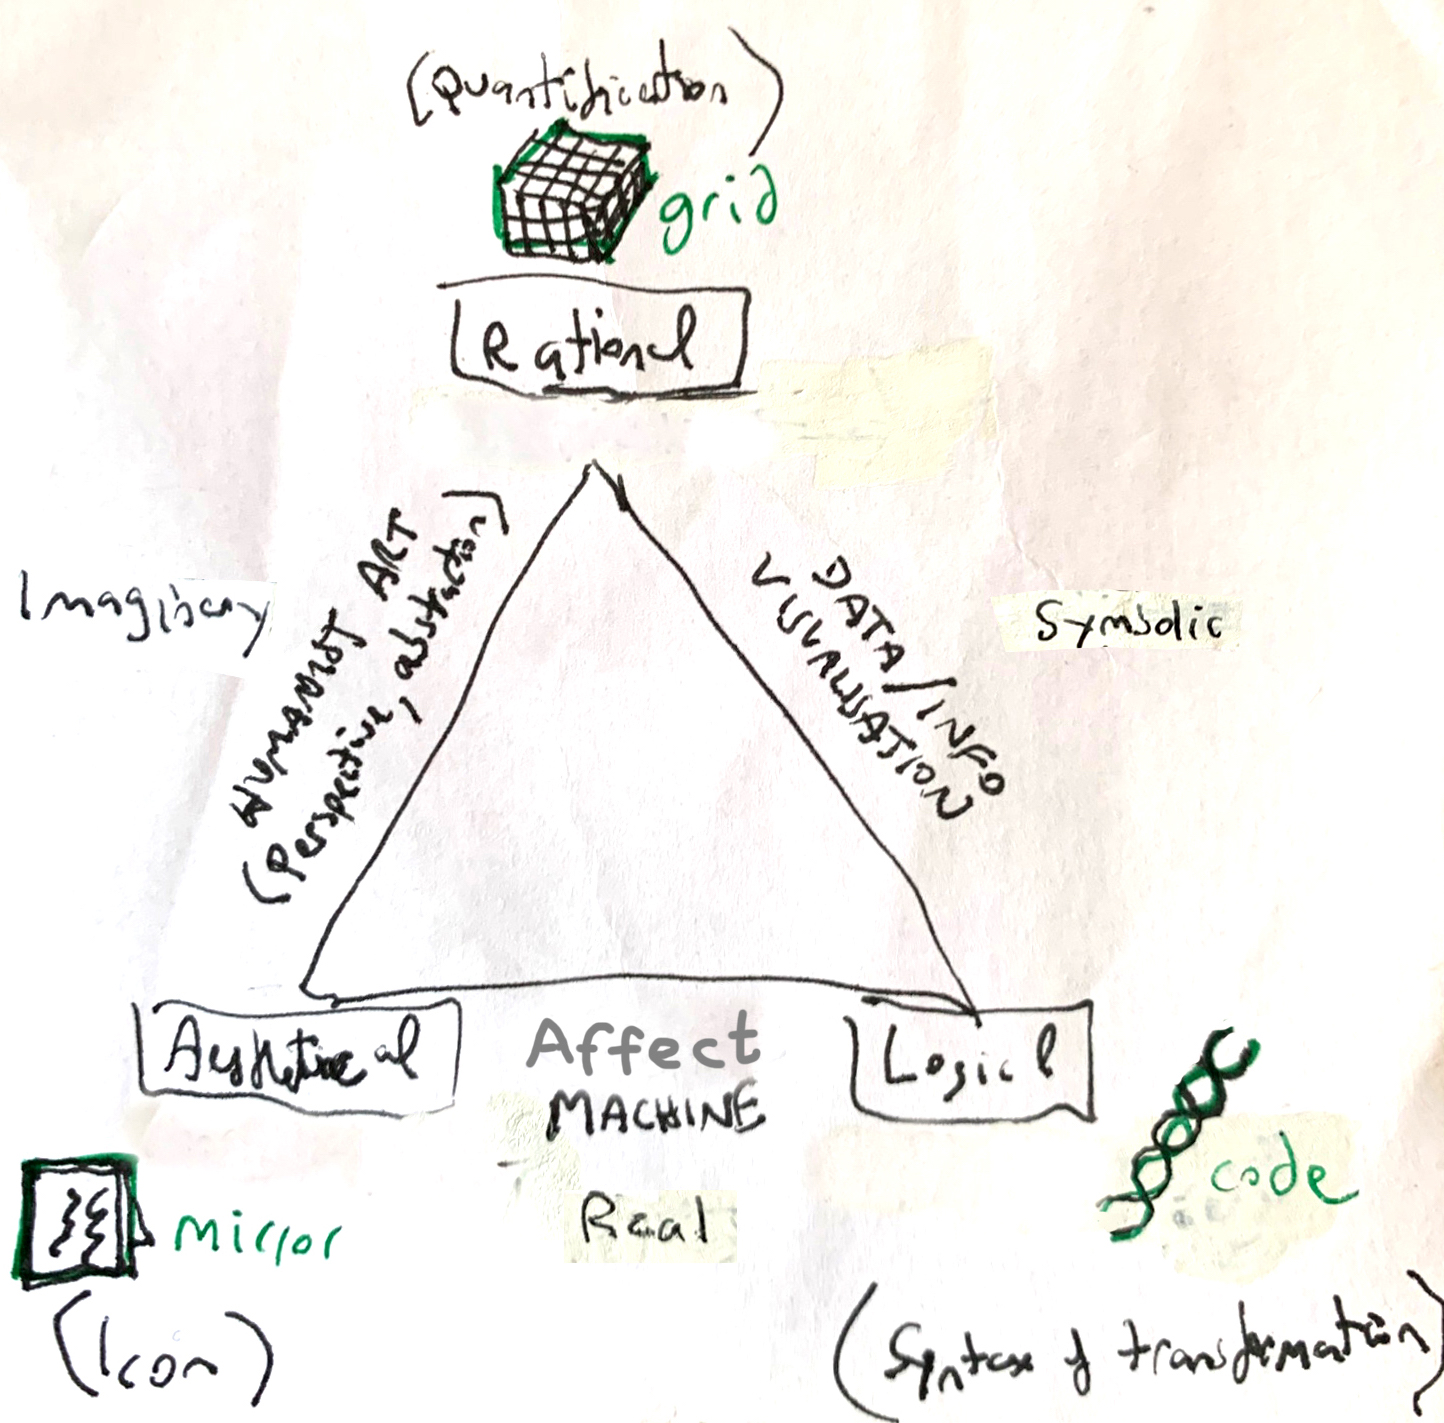 (Quantification)
grid
Rational
HUMANIST ART
(Perspective, abstraction)
DATA/INFO
VISUALISATION
Imaginary
Symbolic
Aesthetical
Affect
MACHINE
Logical
Real
mirror
code
(Icon)
(Syntax of transformation)